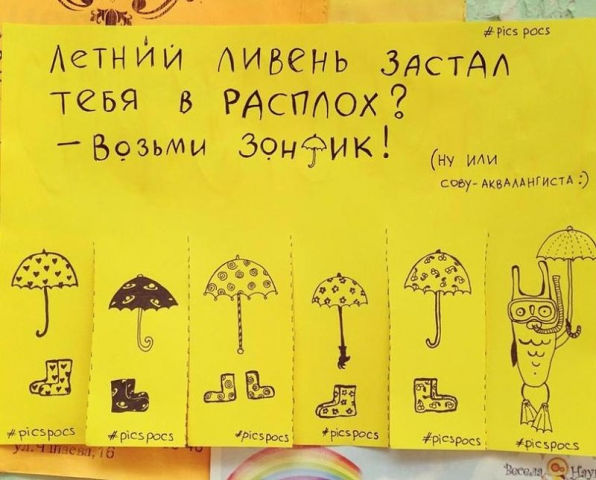 #pics pocs
Летний ливень застал
тебя в расплох?
- Возьми зонтик!
(ну или
сову-аквалангиста :)
#picspocs
#picspocs
#picspocs
#picspocs
#picspocs
#picspocs
Весела Нау